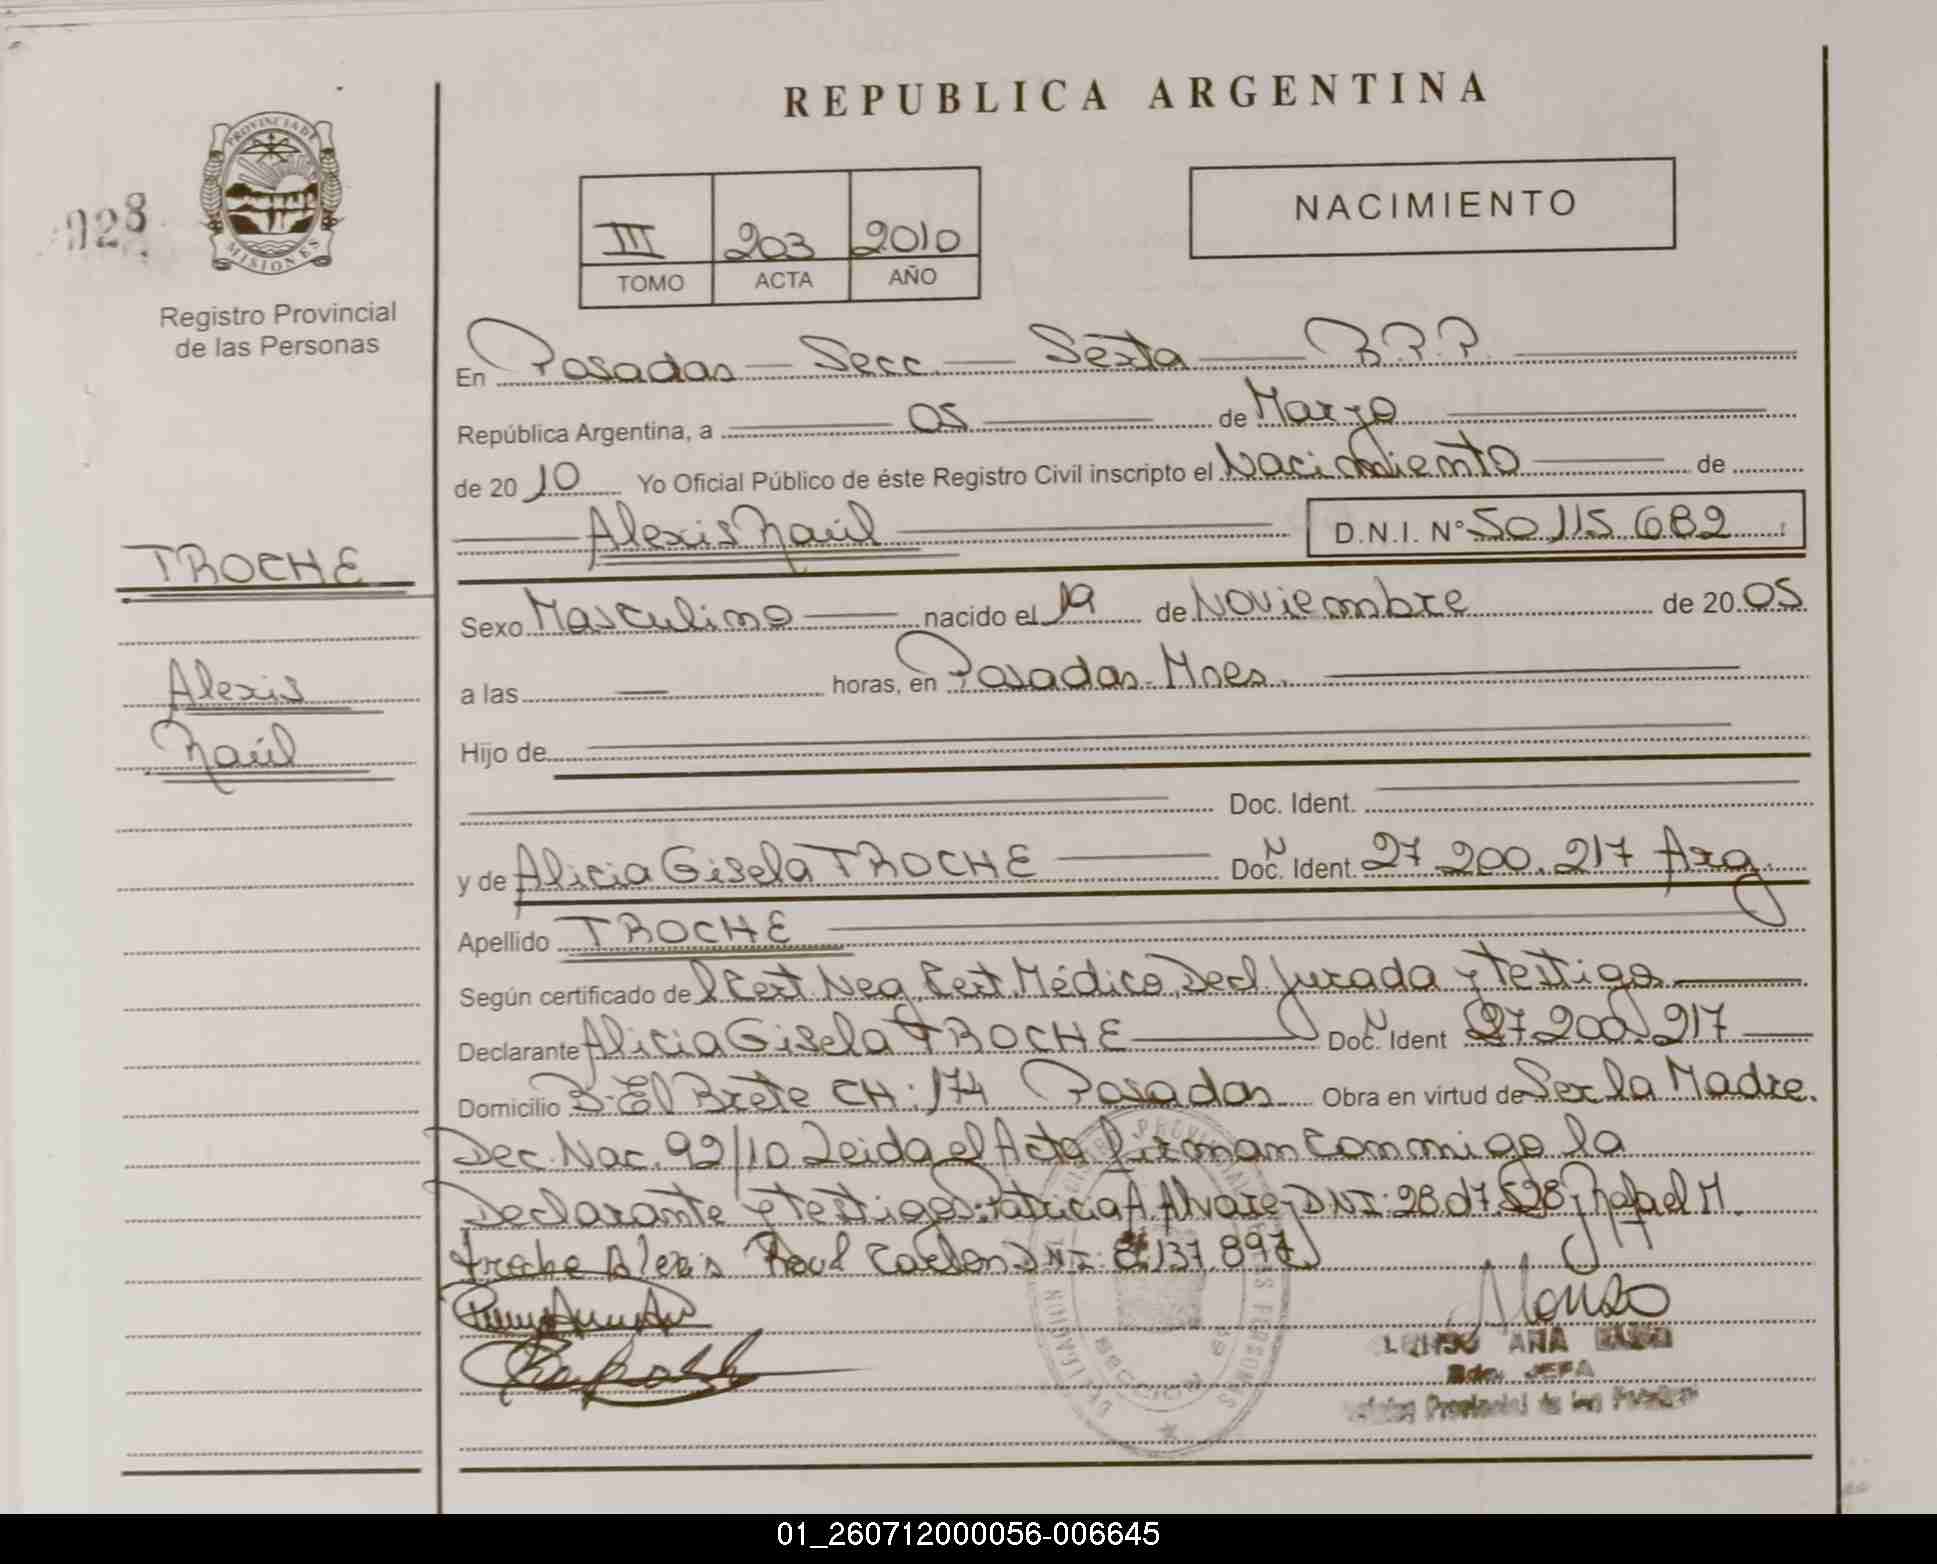 REPUBLICA ARGENTINA
PROVINCIA DE
MISIONES
028
Registro Provincial
de las Personas
III 203 2010
TOMO ACTA AÑO
NACIMIENTO
En Posadas - Secc. - Sexta - R.P.P.
República Argentina, a 05 de Marzo
de 2010 Yo Oficial Público de éste Registro Civil inscripto el Nacimiento de
Alexis Raúl D.N.I. N° 50.115.682
TROCHE
Alexis
Raúl
Sexo Masculino nacido el 19 de Noviembre de 2005
a las — horas, en Posadas - Mnes.
Hijo de
Doc. Ident.
y de Alicia Gisela TROCHE Doc. N Ident. 27.200.217 Arg.
Apellido TROCHE
Según certificado de l Cert. Neg, Cert. Médico, Decl. Jurada y testigo
Declarante Alicia Gisela TROCHE Doc. N Ident 27.200.217
Domicilio B. El Brete CH: 174 Posadas Obra en virtud de Ser la Madre.
Dec. Nac. 92/10 Leida el Acta firman conmigo la
Declarante y testigos: Patricia A. Alvarez DNI: 28.  .528 y Rafael M.
DNI:  .137.897
Alonso
ANA
JEFA
Provincial de las Personas
01_260712000056-006645